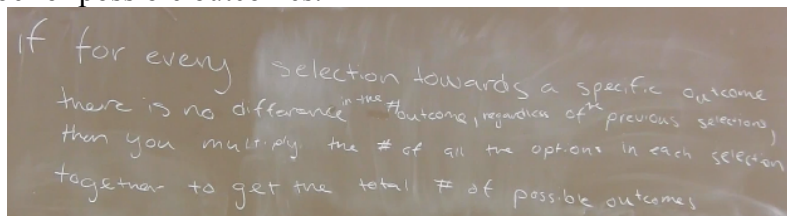 possible outcomes.
If for every selection towards a specific outcome
there is no difference in the # outcome, regardless of the previous selections,
then you multiply the # of all the options in each selection
together to get the total # of possible outcomes